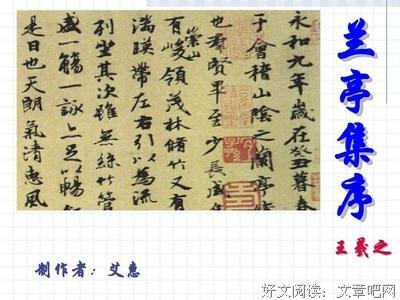 兰亭集序
王羲之
永和九年歲在癸丑暮春
于會稽山陰之蘭亭
也羣賢畢至少長咸
有崇山峻領茂林脩竹又有
湍暎帶左右引以為流
列坐其次雖無絲竹管
盛一觴一詠亦足以暢
是日也天朗氣清惠風
制作者：艾惠
好文阅读：文章吧网